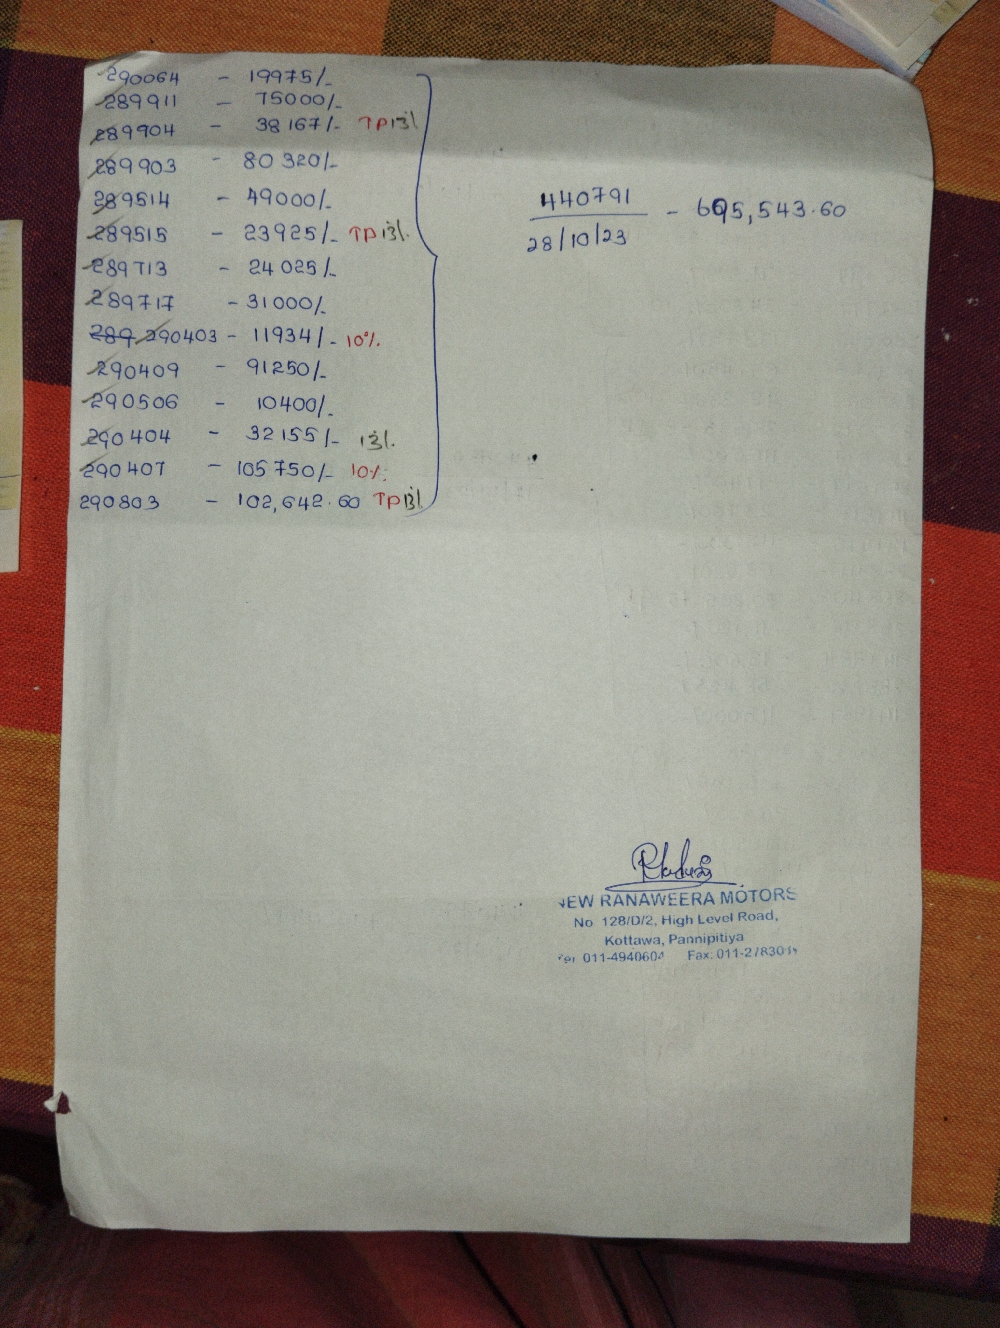 290064 - 19975/-
289911 - 75000/-
289904 - 38167/- TP 13%
289903 - 80320/-
289514 - 49000/-
289515 - 23925/- TP 13%
289713 - 24025/-
289717 - 31000/-
289 290403 - 11934/- 10%
290409 - 91250/-
290506 - 10400/-
290404 - 32155/- 13%
290407 - 105750/- 10%
290803 - 102,642.60 TP 13%
440791 - 695,543.60
28/10/23
NEW RANAWEERA MOTORS
No 128/D/2, High Level Road,
Kottawa, Pannipitiya
Tel 011-4940604 Fax: 011-278303